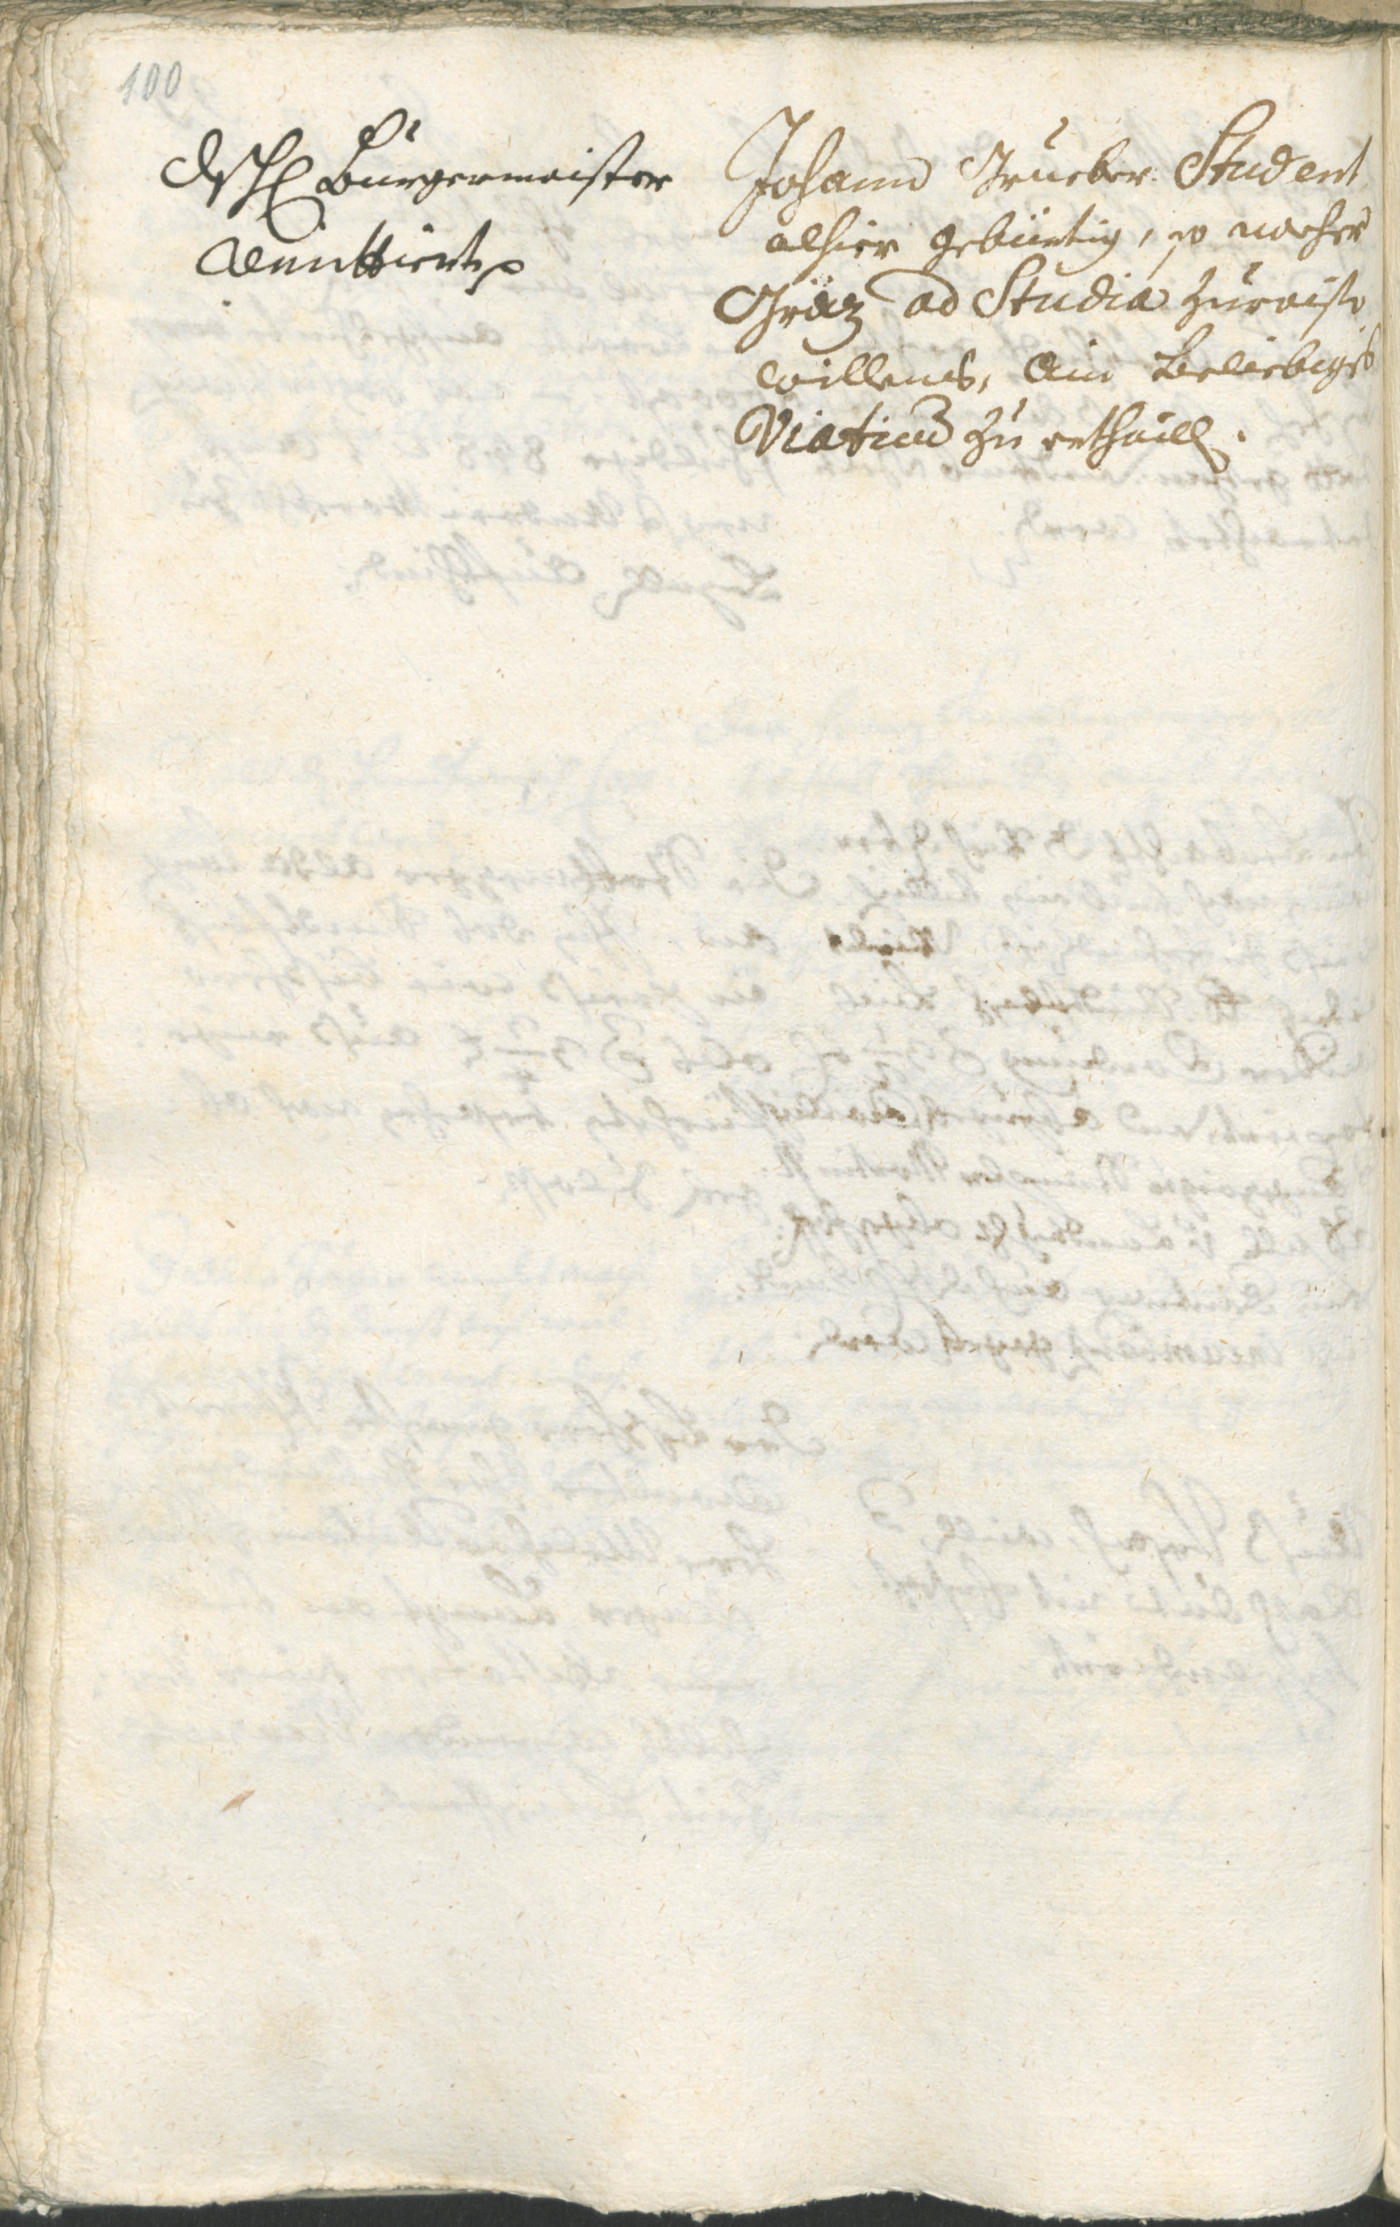 100
H Bürgermeister
Remittiert
Johann Grueber Student
alhier gebürtig, so nacher
Gräz ad Studia zuraisen
willens, Ain beliebiges
Viaticum zu erthaillen.